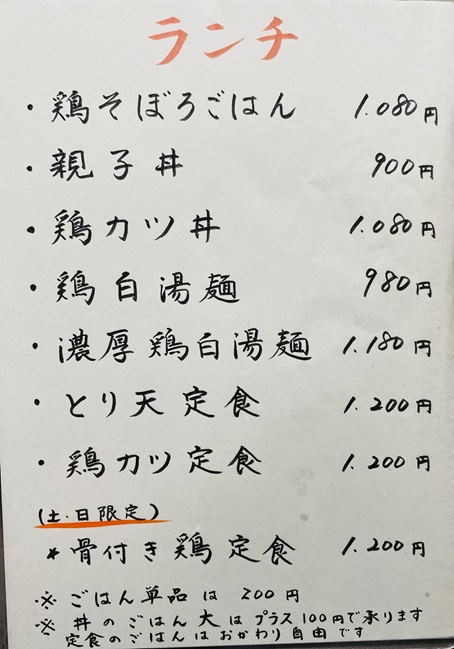 ランチ
・鶏そぼろごはん 1.080円
・親子丼 900円
・鶏カツ丼 1.080円
・鶏白湯麺 980円
・濃厚鶏白湯麺 1.180円
・とり天定食 1.200円
・鶏カツ定食 1.200円
(土.日限定)
*骨付き鶏定食 1.200円
※ごはん単品は200円
※丼のごはん大はプラス100円で承ります
定食のごはんはおかわり自由です